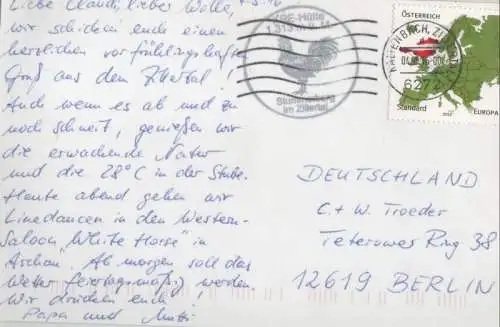 Liebe Claudi, lieber Wolle,
wir schicken euch einen
herzlichen vorfrühlingshaften
Gruß aus dem Zillertal!
Auch wenn es ab und zu
noch schneit, genießen wir
die erwachende Natur
und die 28°C in der Stube.
Heute abend gehen wir
Linedancen in den Western-
Saloon "White Horse" in
Aschau. Ab morgen soll das
Wetter feiertagsmäßig werden.
Wir drücken euch!
Papa und Mutti
1313
im Zillertal
ÖSTERREICH
KALTENBACH, ZILLERTAL
6272
Standard
EUROPA
DEUTSCHLAND
C. + W. Troeder
Teterower Ring 38
12619 BERLIN